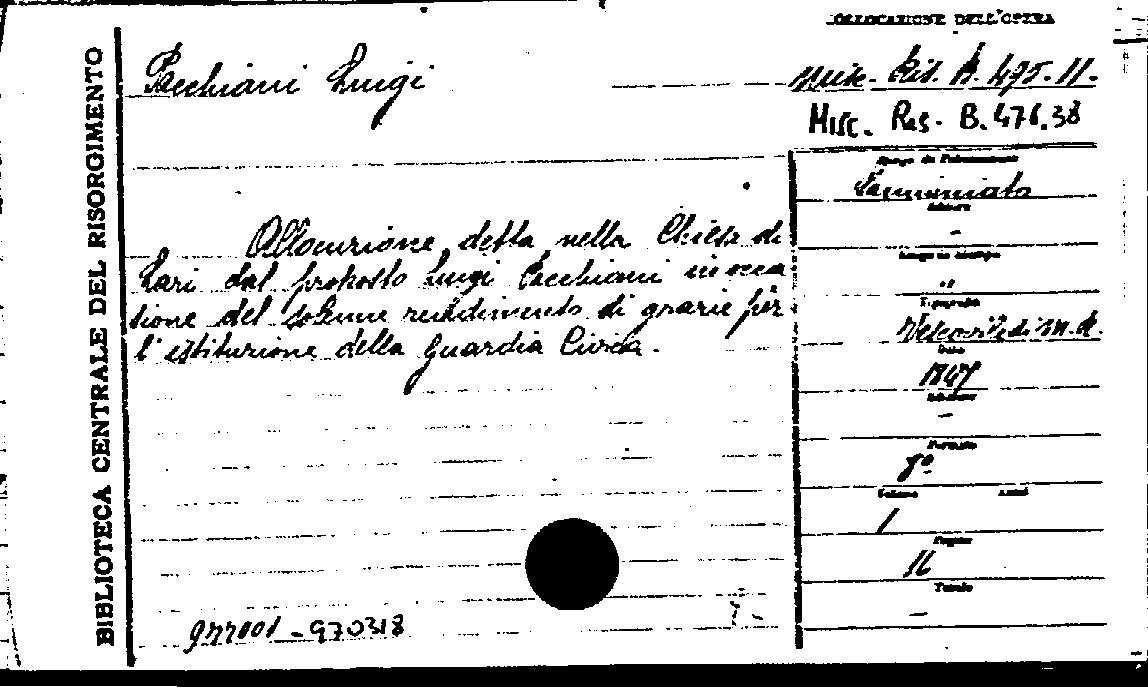 BIBLIOTECA CENTRALE DEL RISORGIMENTO
COLLOCAZIONE DELL'OPERA
Pacchiani Luigi
Misc. Ris. B. 495.11.
Misc. Ris. B. 476.38
Luogo di Pubblicazione
Samminiato
Allocuzione detta nella Chiesa di
Lari dal proposto Luigi Pacchiani in occa
sione del solenne rendimento di grazie per
l'istituzione della Guardia Civica.
Editore
-
Luogo di Stampa
Tipografia
Data
1847
Edizione
-
Formato
8º
Volume
1
Pagine
16
Tavole
-
970318